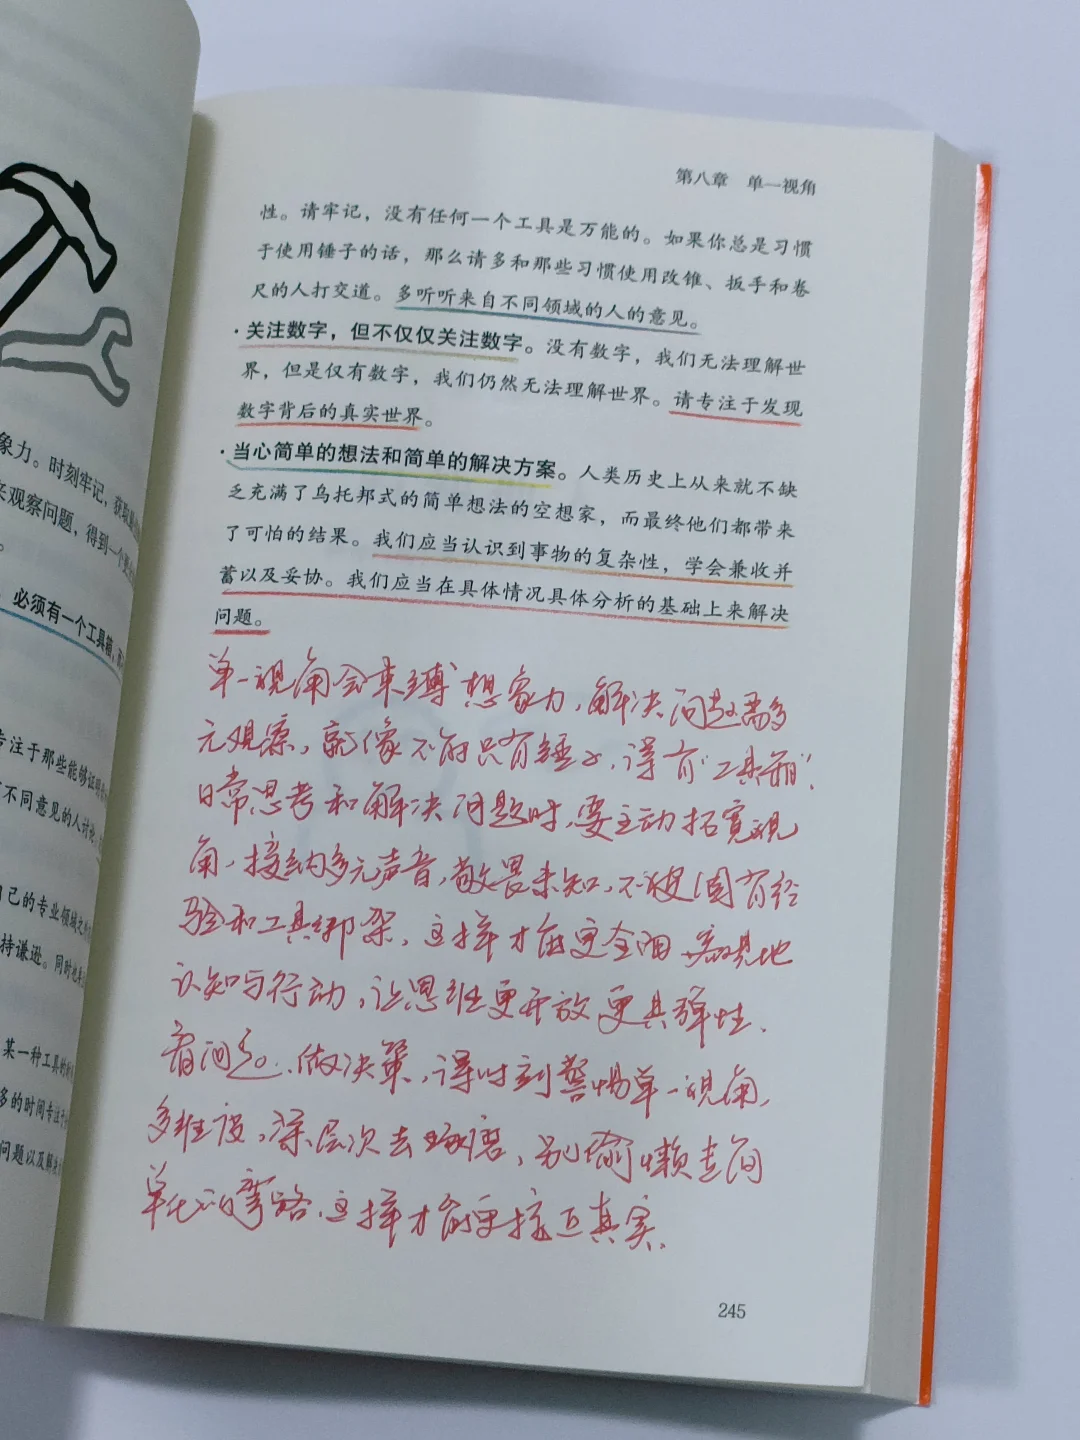 象力。时刻牢记，获取
来观察问题，得到一个更
。
必须有一个工具箱，而
专注于那些能够证明
不同意见的人讨论
自己的专业领域之
持谦逊。同时也
某一种工具的
多的时间专注于
问题以及解
第八章 单一视角
性。请牢记，没有任何一个工具是万能的。如果你总是习惯
于使用锤子的话，那么请多和那些习惯使用改锥、扳手和卷
尺的人打交道。多听听来自不同领域的人的意见。
·关注数字，但不仅仅关注数字。没有数字，我们无法理解世
界，但是仅有数字，我们仍然无法理解世界。请专注于发现
数字背后的真实世界。
·当心简单的想法和简单的解决方案。人类历史上从来就不缺
乏充满了乌托邦式的简单想法的空想家，而最终他们都带来
了可怕的结果。我们应当认识到事物的复杂性，学会兼收并
蓄以及妥协。我们应当在具体情况具体分析的基础上来解决
问题。
单一视角会束缚想象力，解决问题需多
元观察，就像不能只有锤子，得有“工具箱”.
日常思考和解决问题时，要主动拓宽视
角，接纳多元声音，敬畏未知，不被固有经
验和工具绑架，这样才能更全面、客观地
认知与行动，让思维更开放更具弹性.
看问题、做决策，得时刻警惕单一视角，
多维度，深层次去琢磨，别偷懒走简
单化的弯路，这样才能更接近真实.
245